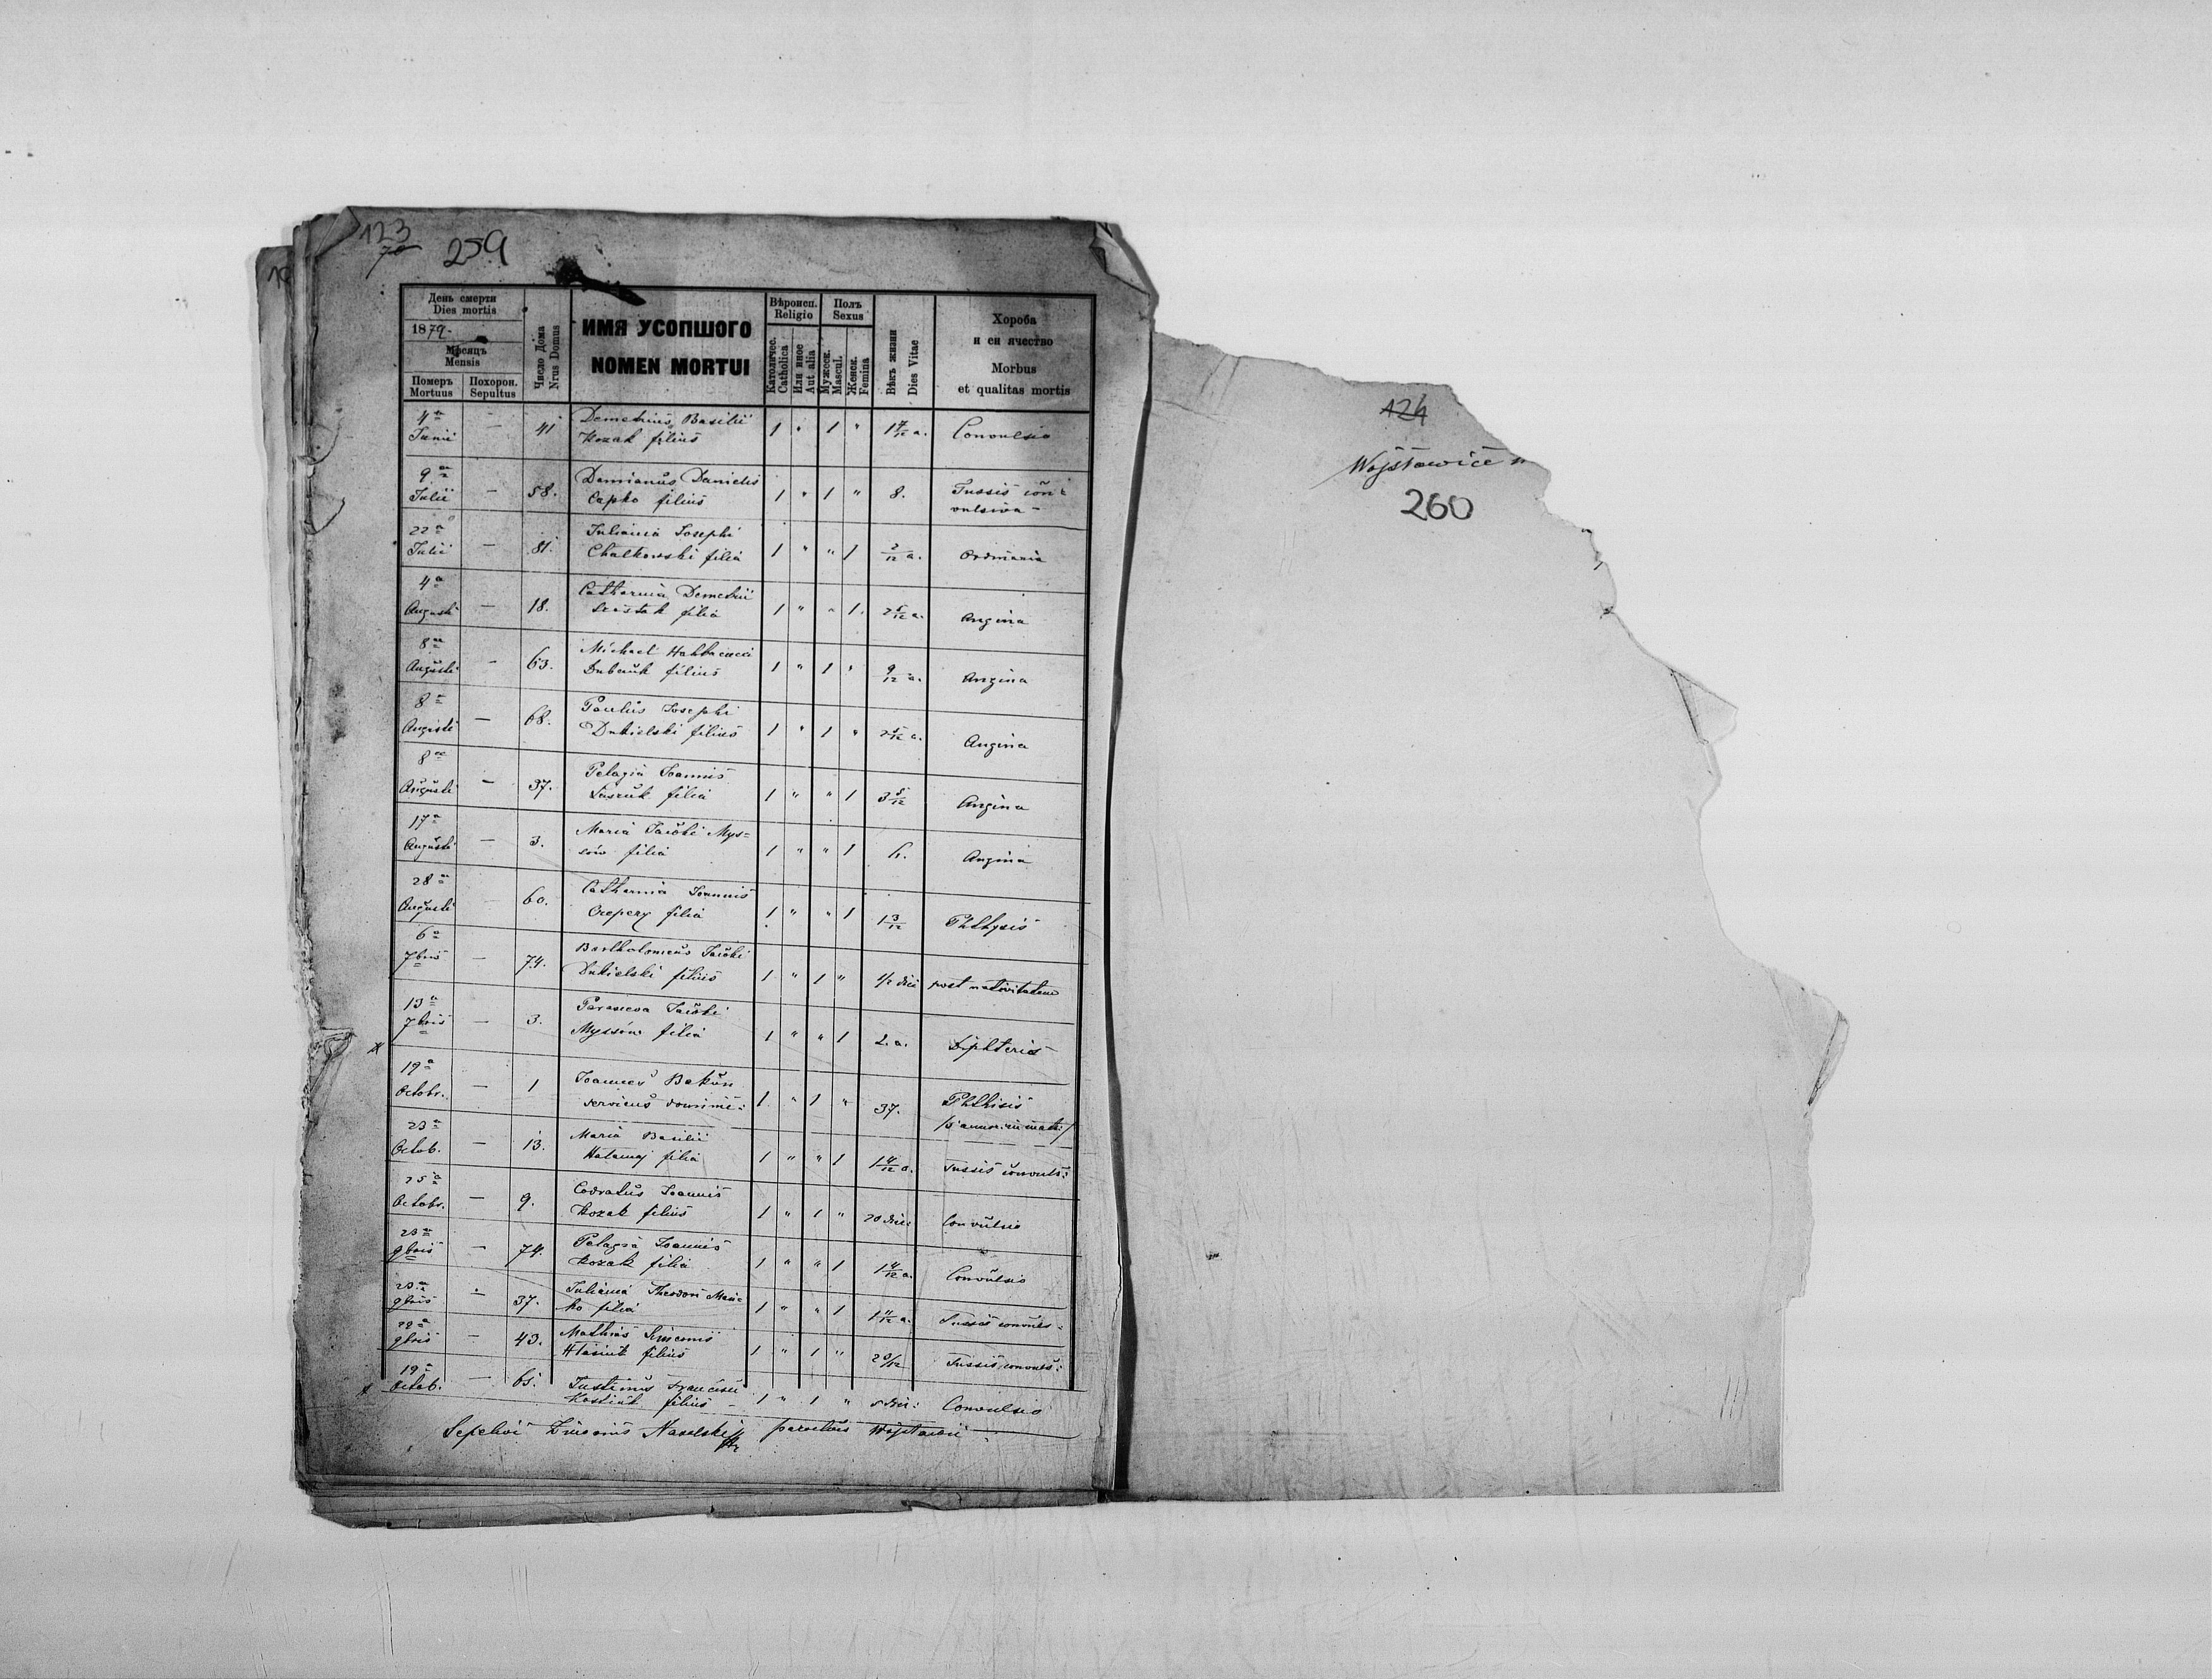 123
70
259
День смерти
Dies mortis
1879.
Мѣсяцъ
Mensis
Померъ
Mortuus
Похорон.
Sepultus
Число Дома
Nrus Domus
ИМЯ УСОПШОГО
NOMEN MORTUI
Вѣроисп.
Religio
Католичес.
Catholica
Или иное
Aut alia
Полъ
Sexus
Мужеск.
Mascul.
Женск.
Femina
Вѣкъ жизни
Dies Vitae
Хороба
и еи ячество
Morbus
et qualitas mortis
4a Junii — 41 Demetrius Basilii
Kozak filius 1 " 1 " 1 7/12 a. Convulsio
9a Julii — 58. Damianus Danielis
Capko filius 1 " 1 " 8. Tussis con=
vulsiva -
22a Julii — 81. Juliana Josephi
Chalkowski filia 1 " " 1 2/12 a. Ordinaria
4a Augusti — 18. Catharina Demetrii
filia 1 " " 1. 2 a. Angina
8a Augusti — 63. Michael
filius 1 " 1 " 9/12 a. Angina
8a Augusti — 68. Paulus Josephi
Dukielski filius 1 " 1 " 2 a. Angina
8a Augusti — 37. Pelagia Joannis
filia 1 " " 1 3 5/12 Angina
17a Augusti — 3. Maria Jacobi Mys=
sów filia 1 " " 1 Angina
28a Augusti 60. Catharina Joannis
Czepery filia 1 " " 1 1 3/12 Phthysis
6a 7bris — 74. Bartholomeus Jacobi
Dukielski filius 1 " 1 " 1/2 diei post nativitatem
13a 7bris — 3. Parasceva Jacobi
Myssów filia 1 " " 1 2. a. Diphteria
19a Octobr. — 1 Joannes Bakun
servicus 1. " 1 " 37. Phthisis
23a Octob. — 13. Maria Basilii
Halamaj filia 1 " " 1 1 4/12 a. Tussis convuls:
25a Octobr. — 9. Codratus Joannis
Kozak filius 1 " 1 " 20 dies Convulsio
23a 9bris — 74. Pelagia Joannis
Kozak filia 1 " " 1 1 4/12 a. Convulsio
23a 9bris — 37. Juliana Theodori
filia 1 " " 1 1 a. Tussis convuls=
9bris — 43. Mathias Simeonis
filius 1 " 1 " Tussis convuls:
19a Octob. — 65. Justinus Francisci
Kostiuk filius - 1 " 1 " 5 dies: Convulsio
Sepelivi Naselski parochus
124
Wojstawice
260